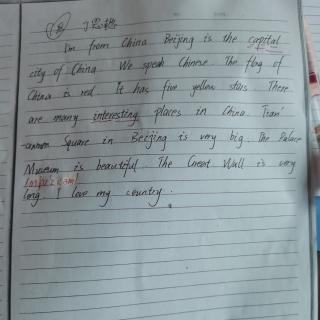 I'm from China. Beijing is the capital
city of China. We speak Chinese. The flag of
China is red. It has five yellow stars. There
are many interesting places in China. Tian'
anmen Square in Beijing is very big. The Palace
Museum is beautiful. The Great Wall is very
long. I love my country.